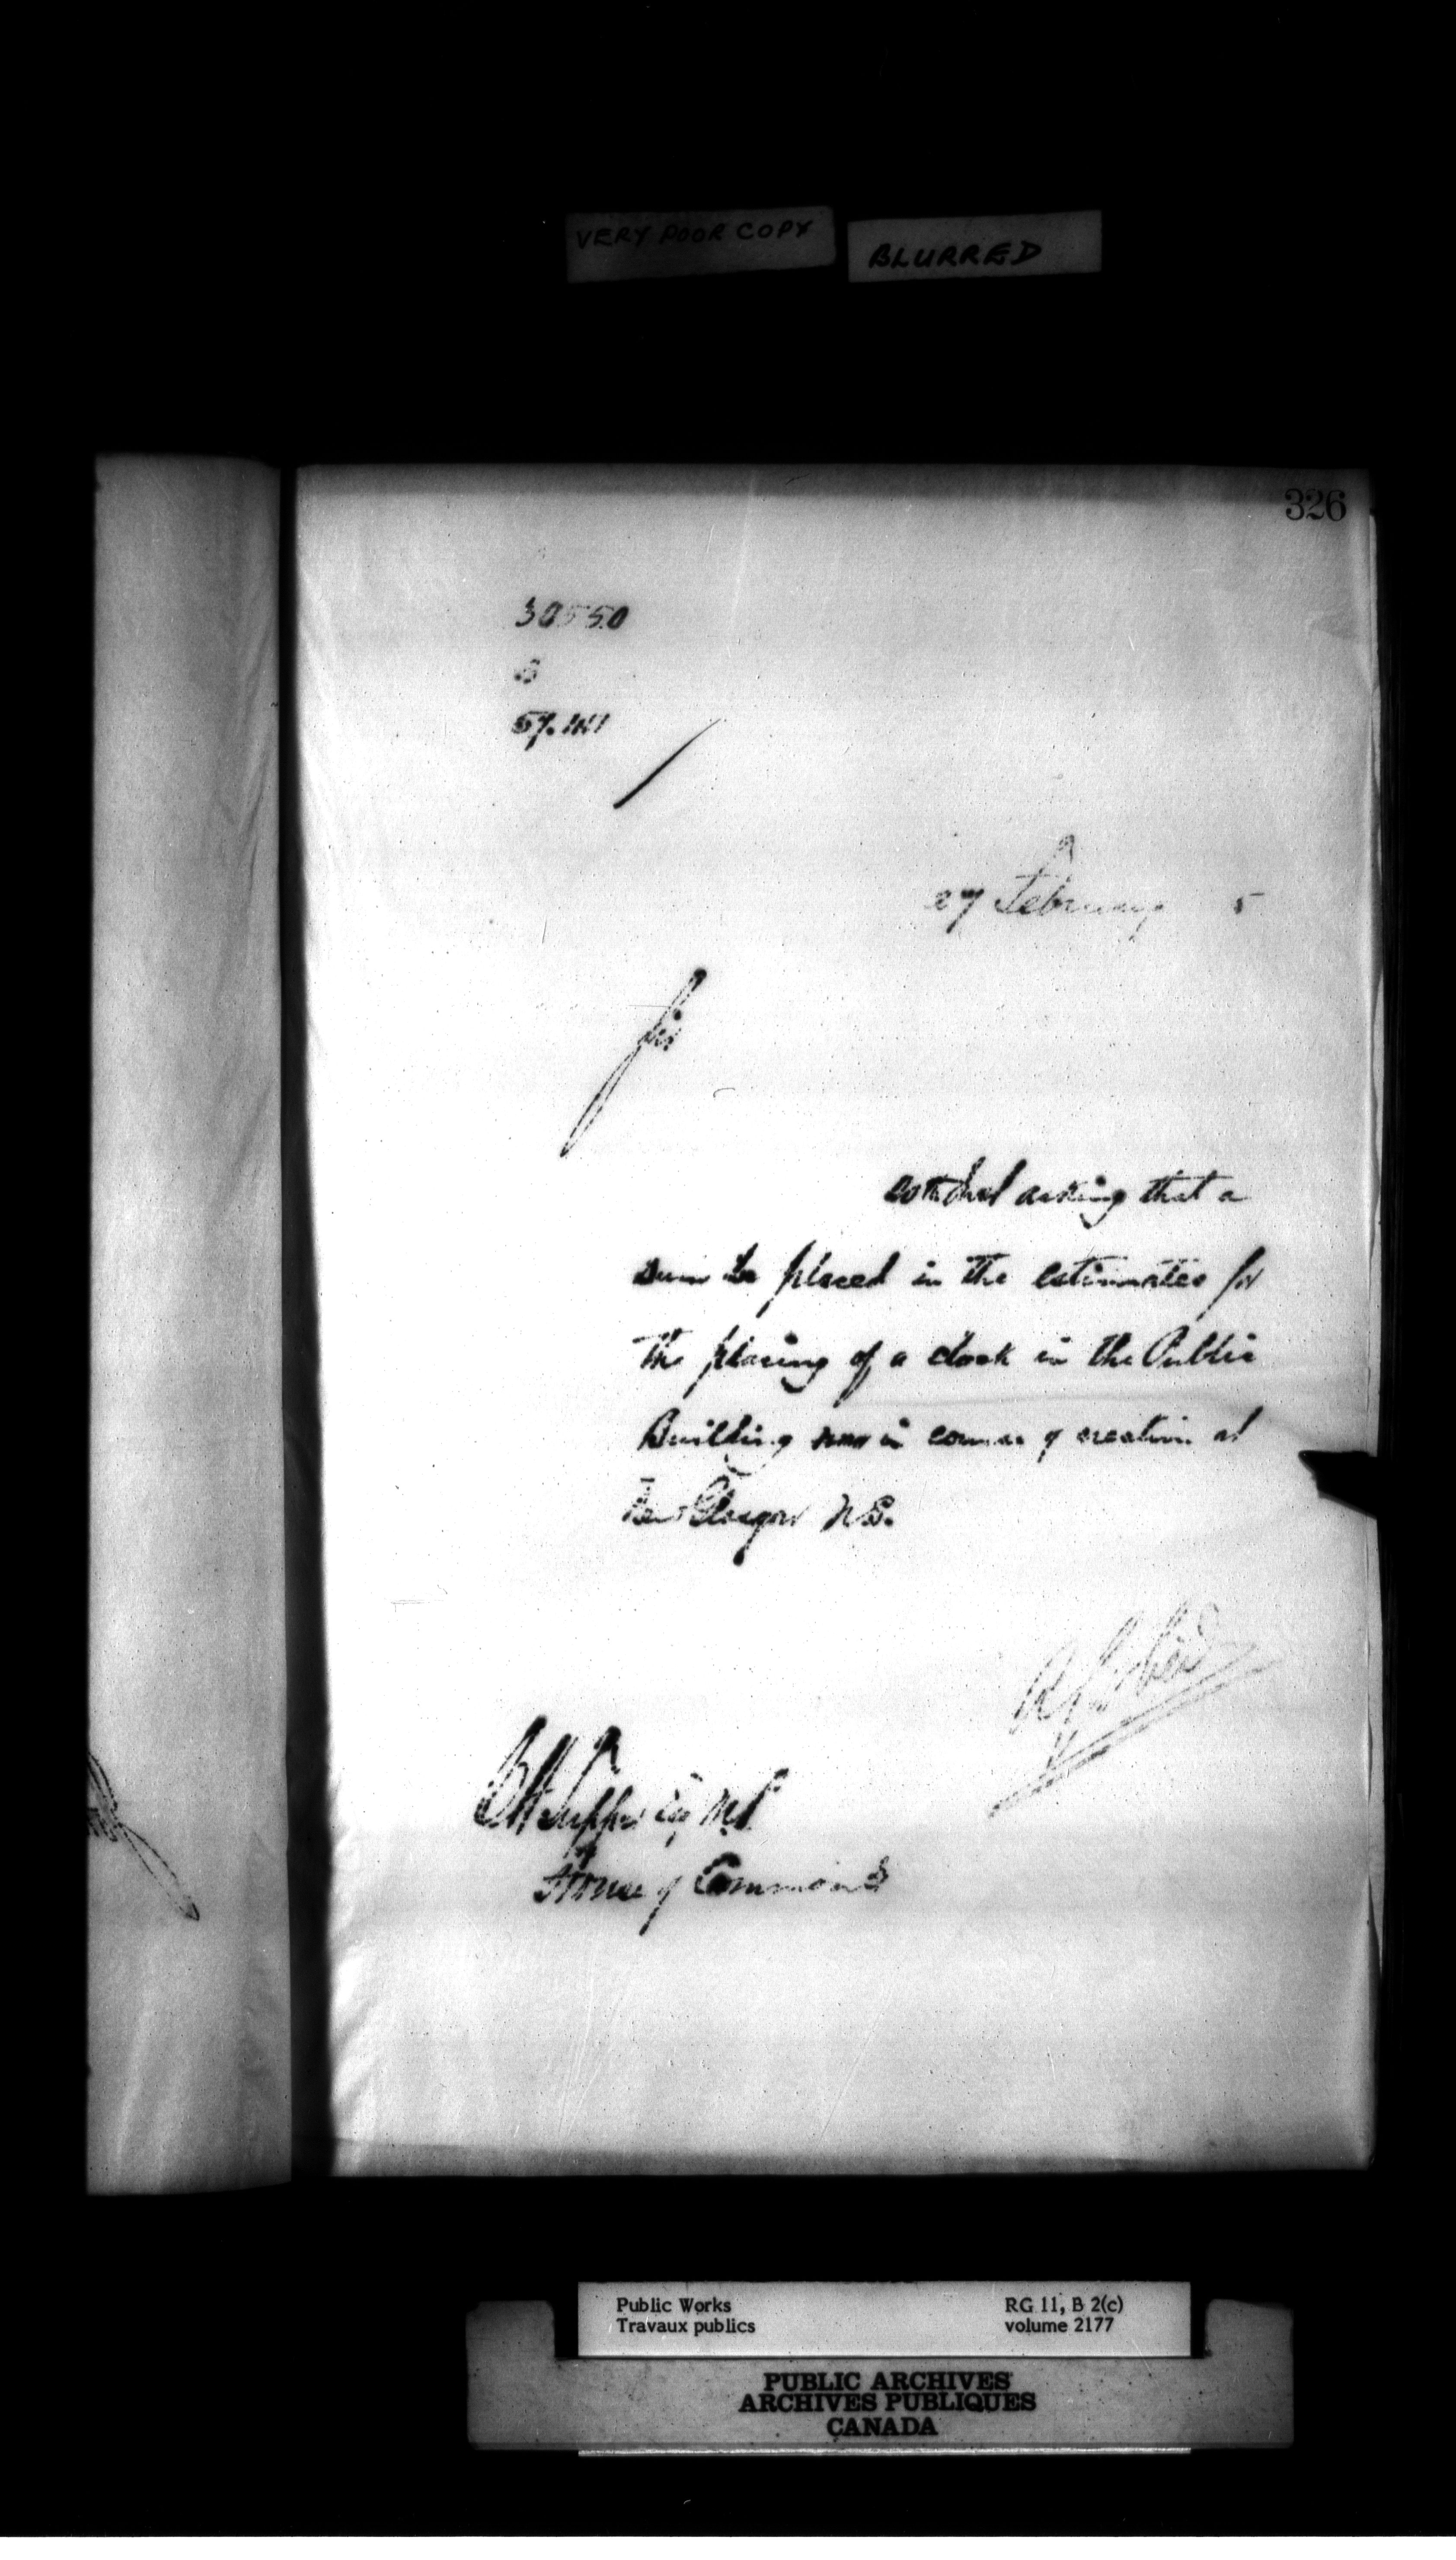 VERY POOR COPY
BLURRED
326
30550
27 February 5
Sir
asking that a
sum be placed in the estimates for
the placing of a clock in the Public
Building now in course of erection at
New Glasgow N.S.
C H Tupper Esq M.P.
House of Commons
Public Works
Travaux publics
RG 11, B 2(c)
volume 2177
PUBLIC ARCHIVES
ARCHIVES PUBLIQUES
CANADA